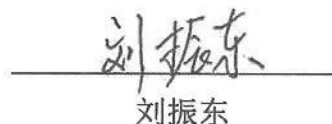 刘振东
刘振东